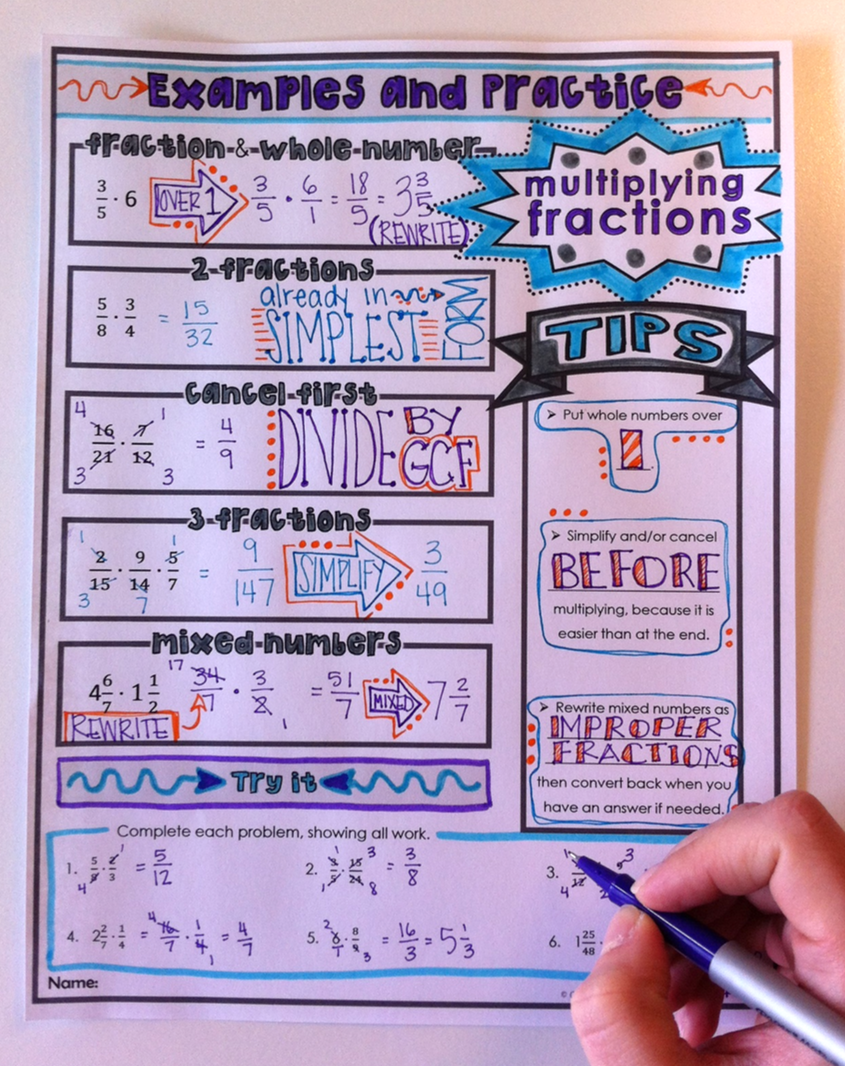 Examples and Practice
fraction-&-whole-number
3/5 · 6 OVER 1 3/5 · 6/1 = 18/5 = 3 3/5
(REWRITE)
multiplying
fractions
2-fractions
5/8 · 3/4 = 15/32 already in
SIMPLEST FORM
TIPS
cancel-first
4 16/21 3 · 1 7/12 3 = 4/9 DIVIDE BY GCF
➢ Put whole numbers over
1
3-fractions
1 2/15 3 · 9/14 7 · 1 5/7 = 9/147 SIMPLIFY 3/49
➢ Simplify and/or cancel
BEFORE
multiplying, because it is
easier than at the end.
mixed-numbers
4 6/7 · 1 1/2 17 34/7 · 3/2 1 = 51/7 MIXED 7 2/7
REWRITE
➢ Rewrite mixed numbers as
IMPROPER
FRACTIONS
then convert back when you
have an answer if needed.
Try it
Complete each problem, showing all work.
1. 5/8 4 · 2/3 1 = 5/12
2. 1 3/5 1 · 3 15/24 8 = 3/8
3. 4 12 3
4. 2 2/7 · 1/4 = 4 16/7 · 1/4 1 = 4/7
5. 2 6/1 · 8/9 3 = 16/3 = 5 1/3
6. 1 25/48 ·
Name:
©